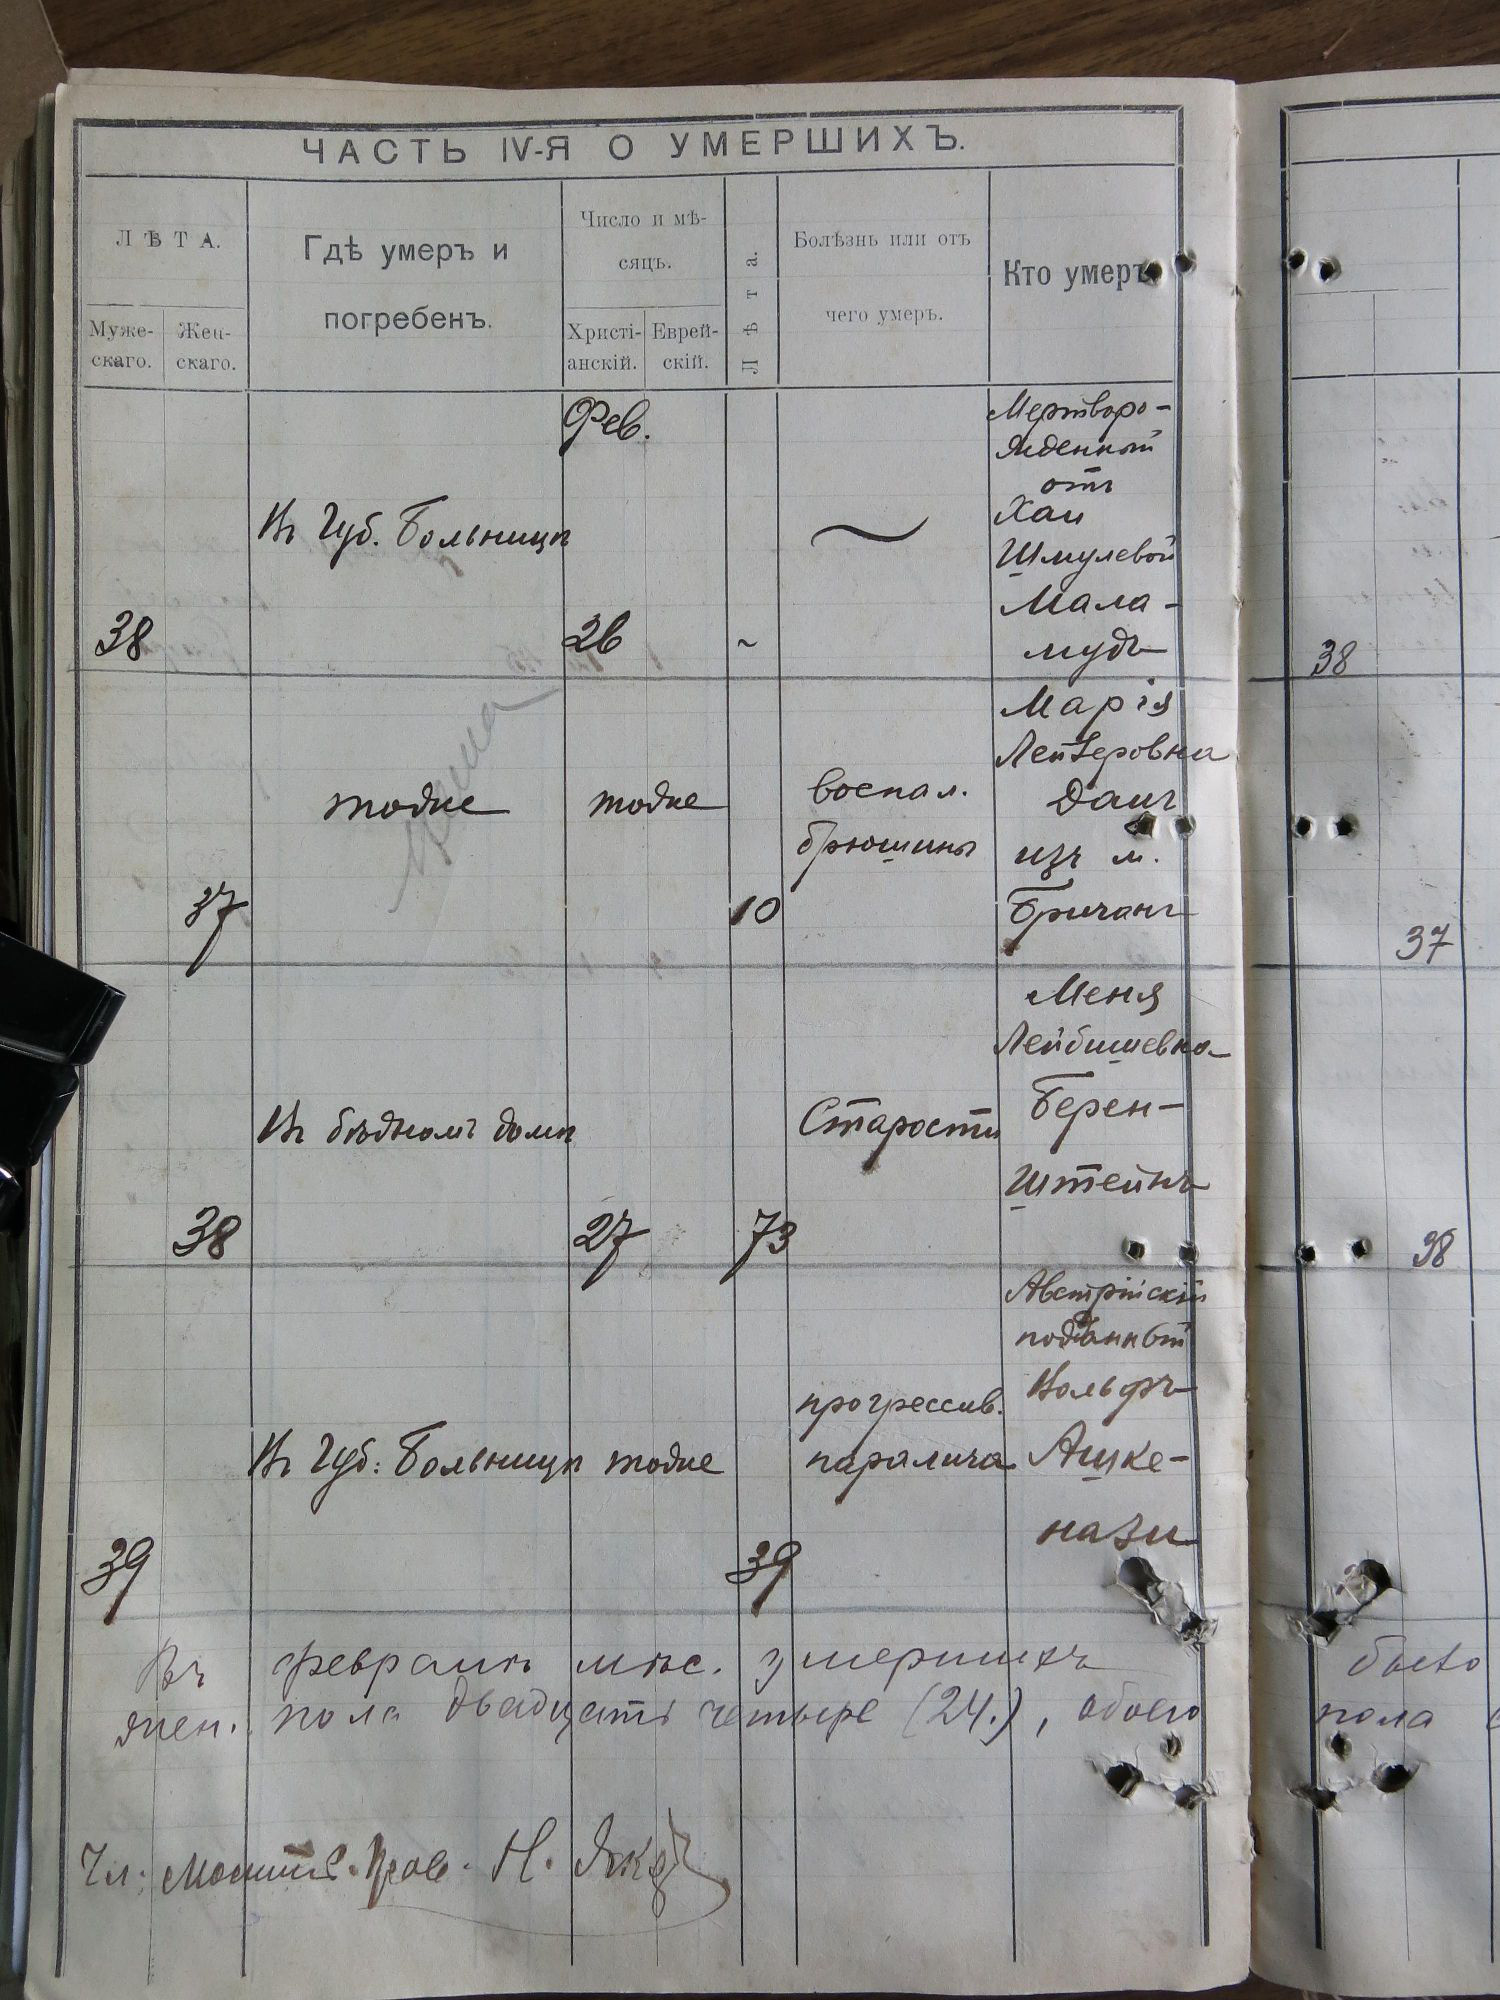 ЧАСТЬ IV-Я О УМЕРШИХЪ.
ЛѢТА.
Муже-
скаго.
Жен-
скаго.
Гдѣ умеръ и
погребенъ.
Число и мѣ-
сяцъ.
Христі-
анскій.
Еврей-
скій.
Лѣта.
Болѣзнь или отъ
чего умеръ.
Кто умеръ
Фев.
Въ Губ. Больницѣ
38
26
~
~
Мертворо-
жденный
отъ
Хаи
Шмулевой
Мала-
мудъ
38
тоже
тоже
37
10
воспал.
брюшины
Марія
Лейзеровна
Даич
изъ м.
Бричанъ
37
Въ бѣдномъ домѣ
38
27
73
Старости
Меня
Лейбишевна
Берен-
штейнъ
38
Въ Губ: Больницѣ
тоже
39
39
прогрессив.
паралича
Австрійскій
подданный
Вольфъ
Ашке-
нази
Въ февралѣ мѣс. умершихъ было
жен. пола двадцать четыре (24.), обоего пола
Чл: Н.